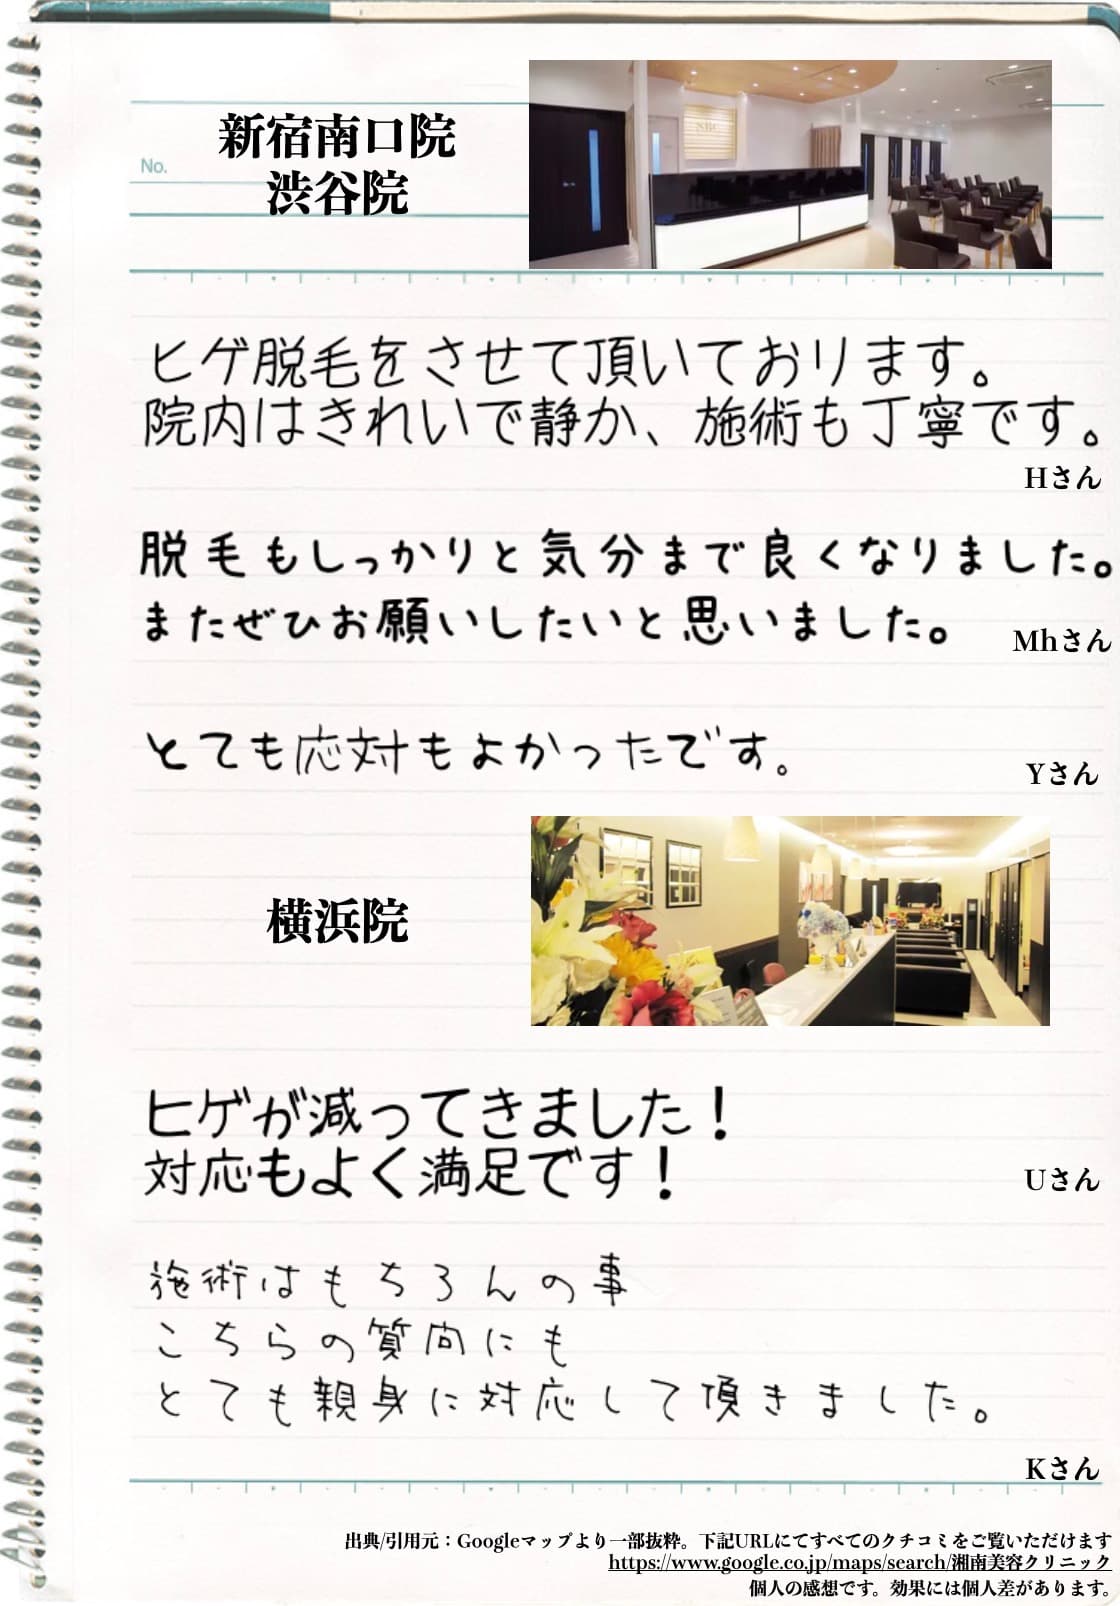 新宿南口院
渋谷院
SBC
No.
ヒゲ脱毛をさせて頂いております。
院内はきれいで静か、施術も丁寧です。
Hさん
脱毛もしっかりと気分まで良くなりました。
またぜひお願いしたいと思いました。
Mhさん
とても応対もよかったです。
Yさん
横浜院
ヒゲが減ってきました！
対応もよく満足です！
Uさん
施術はもちろんの事
こちらの質問にも
とても親身に対応して頂きました。
Kさん
出典/引用元：Googleマップより一部抜粋。下記URLにてすべてのクチコミをご覧いただけます
https://www.google.co.jp/maps/search/湘南美容クリニック
個人の感想です。効果には個人差があります。